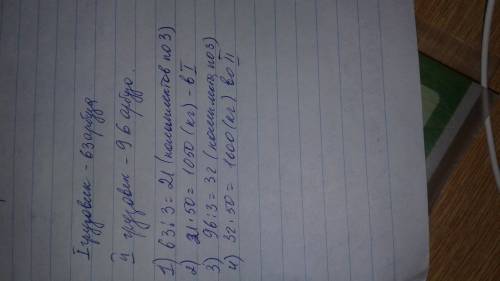 I грузовик - 63 арбуза
II грузовик - 96 арбузо.
1) 63:3=21 (комплектов по 3)
2) 21·50=1050 (кг) - в I
3) 96:3=32 (по 3)
4) 32·50=1600 (кг) во II